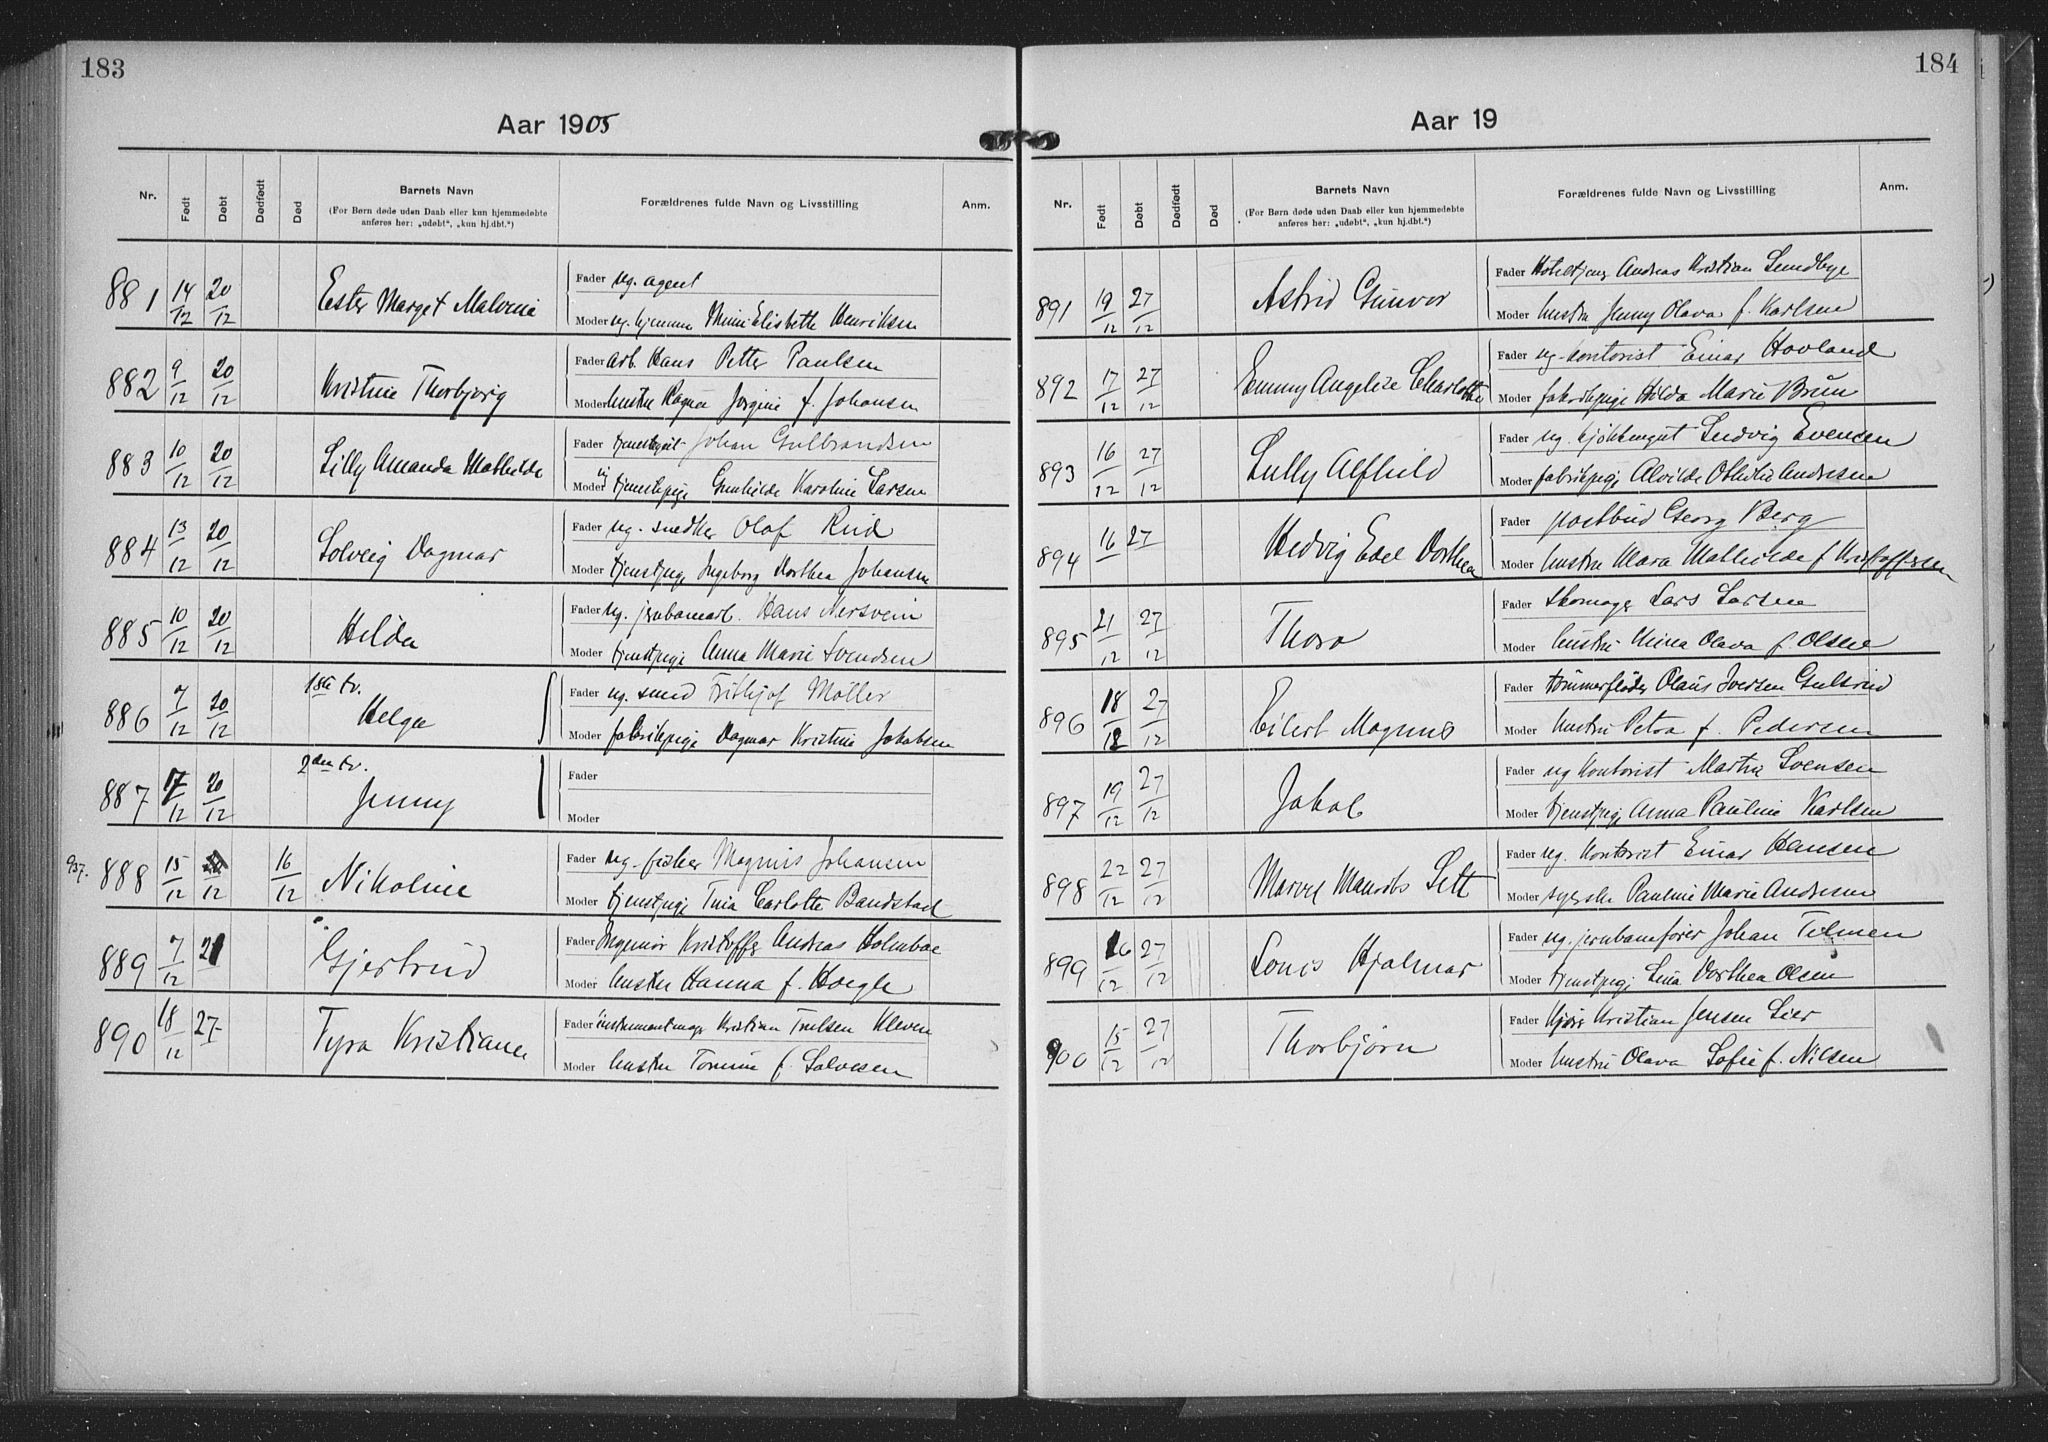 183
Aar 1905
Nr. Født Døbt Dødfødt Død Barnets Navn Forældrenes fulde Navn og Livsstilling Anm.
(For Børn døde uden Daab eller kun hjemmedøbte
anføres her: „udøbt“, „kun hj.dbt.“)
881 14/12 20/12 Ester Marget Malvina
Fader ug. agent
Moder ug. hjemme Mimi Elisbeth Henriksen
882 9/12 20/12 Kristine Thorbjørg
Fader arb. Hans Petter Paulsen
Moder hustru Ragna Jørgine f. Johansen
883 10/12 20/12 Lilly Amanda Mathilde
Fader tjenestegut Johan Gulbrandsen
Moder ug tjenestepige Gunhilde Karoline Larsen
884 13/12 20/12 Solveig Dagmar
Fader ug. snedker Olaf Ruid
Moder tjenstpige Ingeborg Dorthea Johansen
885 10/12 20/12 Hilda
Fader ug. jernbanearb. Hans Nersvein
Moder tjenstpige Anna Marie Svendsen
886 7/12 20/12 1ste tv. Helga
Fader ug. smed Frithjof Møller
Moder fabrikpige Dagmar Kristine Jakobsen
887 17/12 20/12 2den tv. Jenny
Fader
Moder
937. 888 15/12 /12 16/12 Nikoline
Fader ug. fisker Magnus Johansen
Moder tjenstpige Tina Carlotte Bandstad
889 7/12 21 Gjertrud
Fader Ingeniør Kristoffer Andreas Holmboe
Moder hustru Hanna f. Hoegh
890 18/12 27 Tyra Kristiane
Fader instrumentmager Kristian Trulsen Kleven
Moder hustru Tomine f. Salvesen
184
Aar 19
Nr. Født Døbt Dødfødt Død Barnets Navn Forældrenes fulde Navn og Livsstilling Anm.
(For Børn døde uden Daab eller kun hjemmedøbte
anføres her: „udøbt“, „kun hj.dbt.“)
891 19/12 27/12 Astrid Gunvor
Fader Hoteltjener Andreas Kristian Lundbye
Moder hustru Jenny Olava f. Karlsen
892 17/12 27/12 Emmy Angelise Charlotte
Fader ug. kontorist Einar Hovland
Moder fabrikpige Hilda Marie Bruun
893 16/12 27/12 Lully Alfhild
Fader ug. kjøkkengut Ludvig Evensen
Moder fabrikpige Alvilde Othilie Andresen
894 16 27 Hedvig Edel Dorthea
Fader postbud Georg Berg
Moder hustru Klara Mathilde f Kristoffersen
895 21/12 27/12 Thora
Fader skomager Lars Larsen
Moder hustru Mina Olava f. Olsen
896 18/12 27/12 Eilert Magnus
Fader tømmerfløder Olaus Iversen Gulsrud
Moder hustru Petra f. Pedersen
897 19/12 27/12 Jakob
Fader ug kontorist Martin Svensen
Moder tjenstpige Anna Pauline Karlsen
898 22/12 27/12
Fader ug. kontorist Einar Hansen
Moder syerske Pauline Marie Andresen
899 16/12 27/12 Louis Hjalmar
Fader ug. jernbanefører Johan Tilmen
Moder tjenstpige Lina Dorthea Olsen
900 15/12 27/12 Thorbjørn
Fader Kjører Kristian Jensen Lier
Moder hustru Olava Sofie f. Nilsen